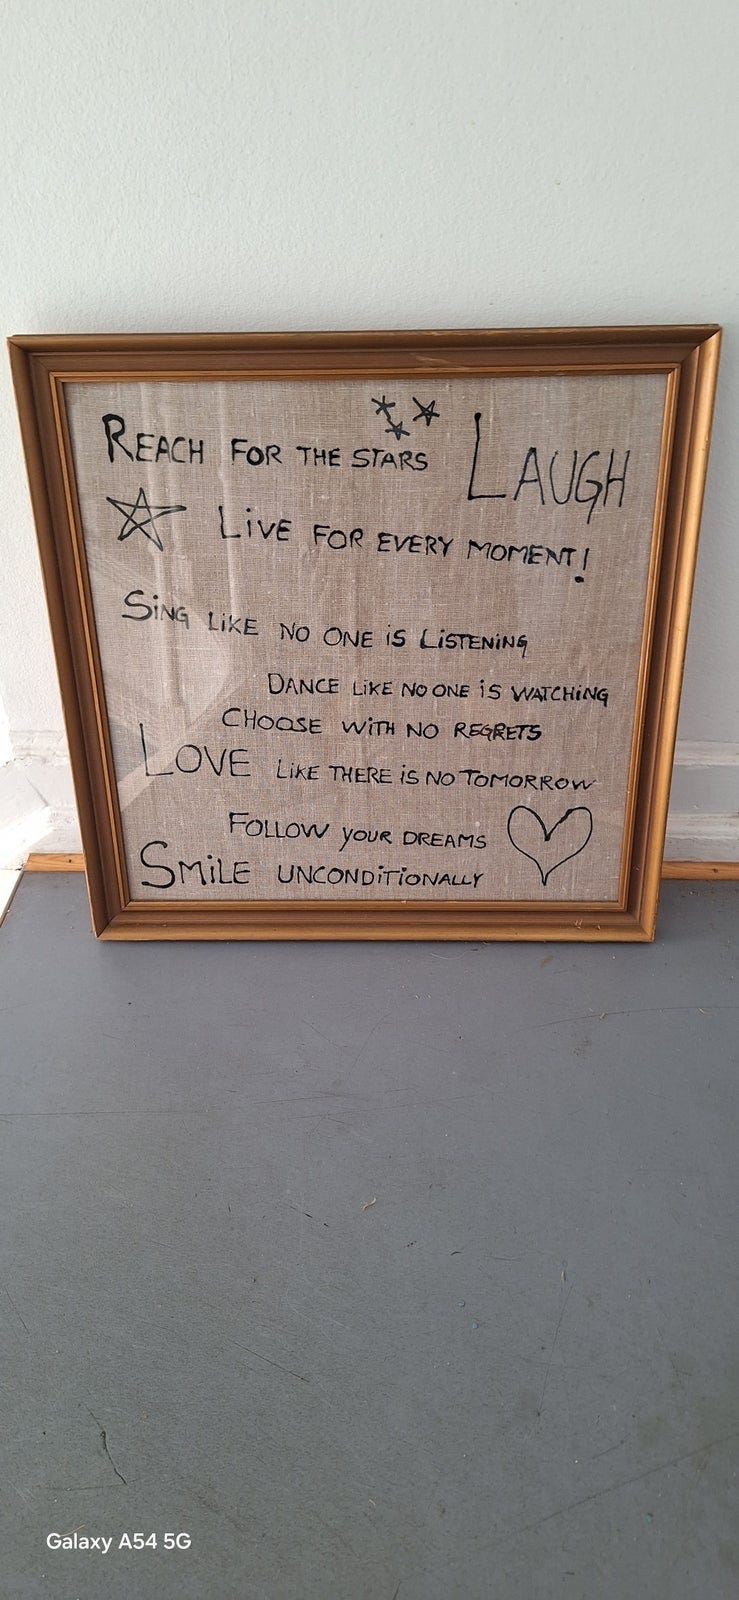 REACH FOR THE STARS LAUGH
LiVE FOR EVERY MOMENT!
SiNG LiKE NO ONE iS LiSTENiNG
DANCE LiKE NO ONE iS WATCHiNG
CHOOSE WiTH NO REGRETS
LOVE LiKE THERE iS NO TOMORROW
FOLLOW YOUR DREAMS
SMiLE UNCONDiTiONALLY
Galaxy A54 5G